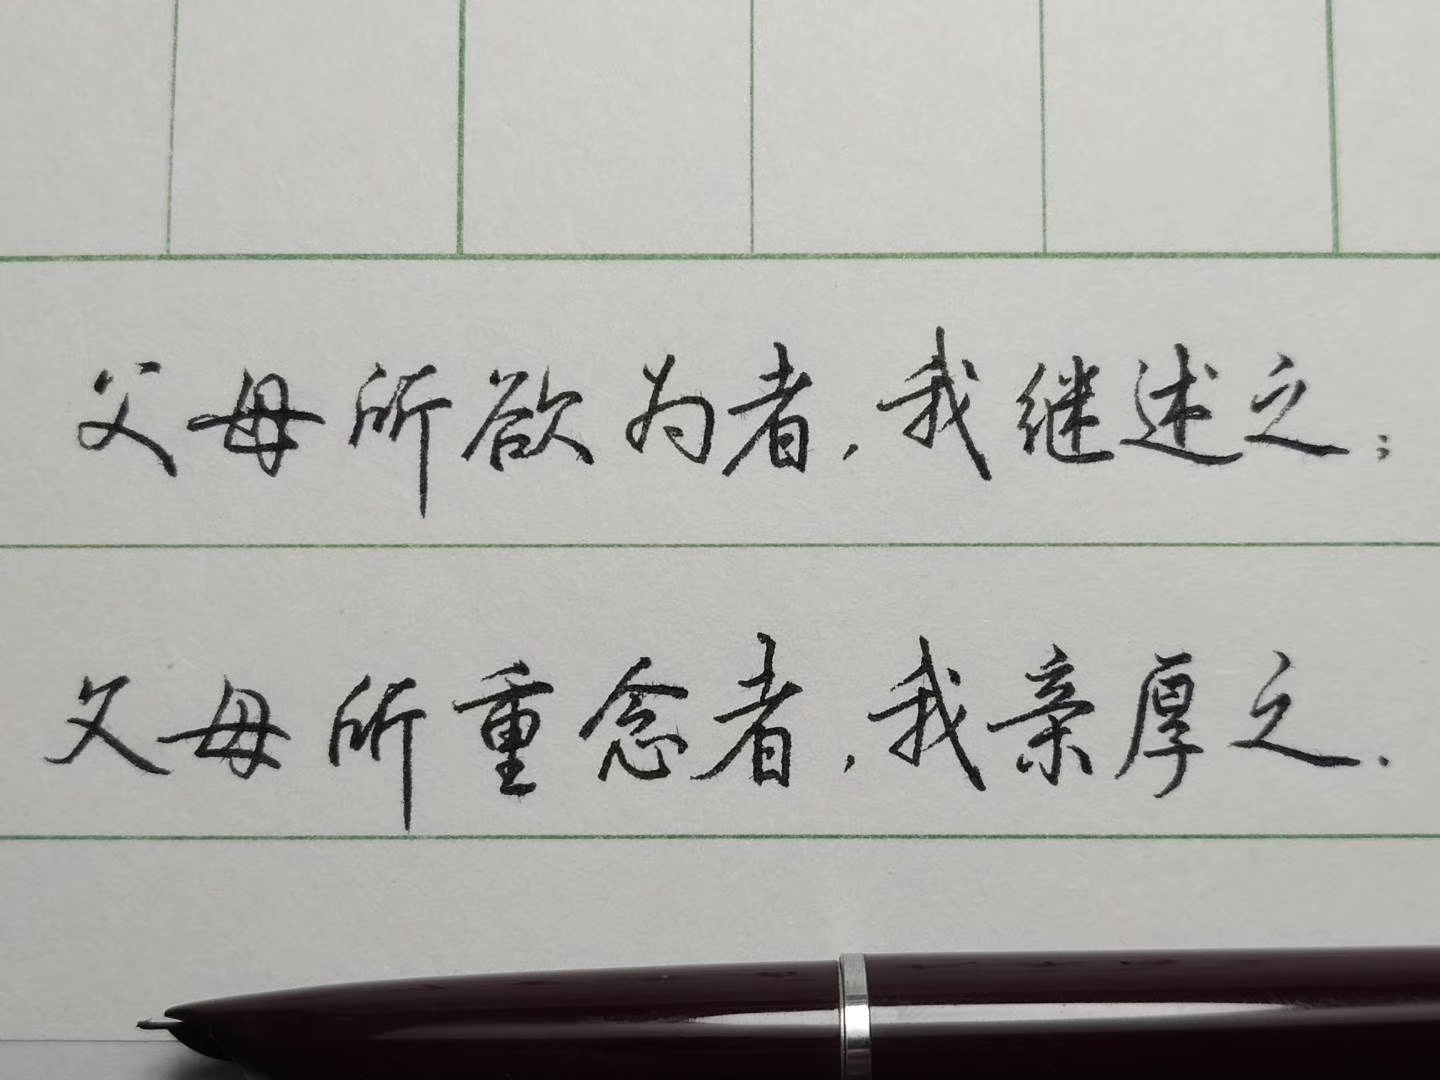 父母所欲为者，我继述之；
父母所重念者，我亲厚之.